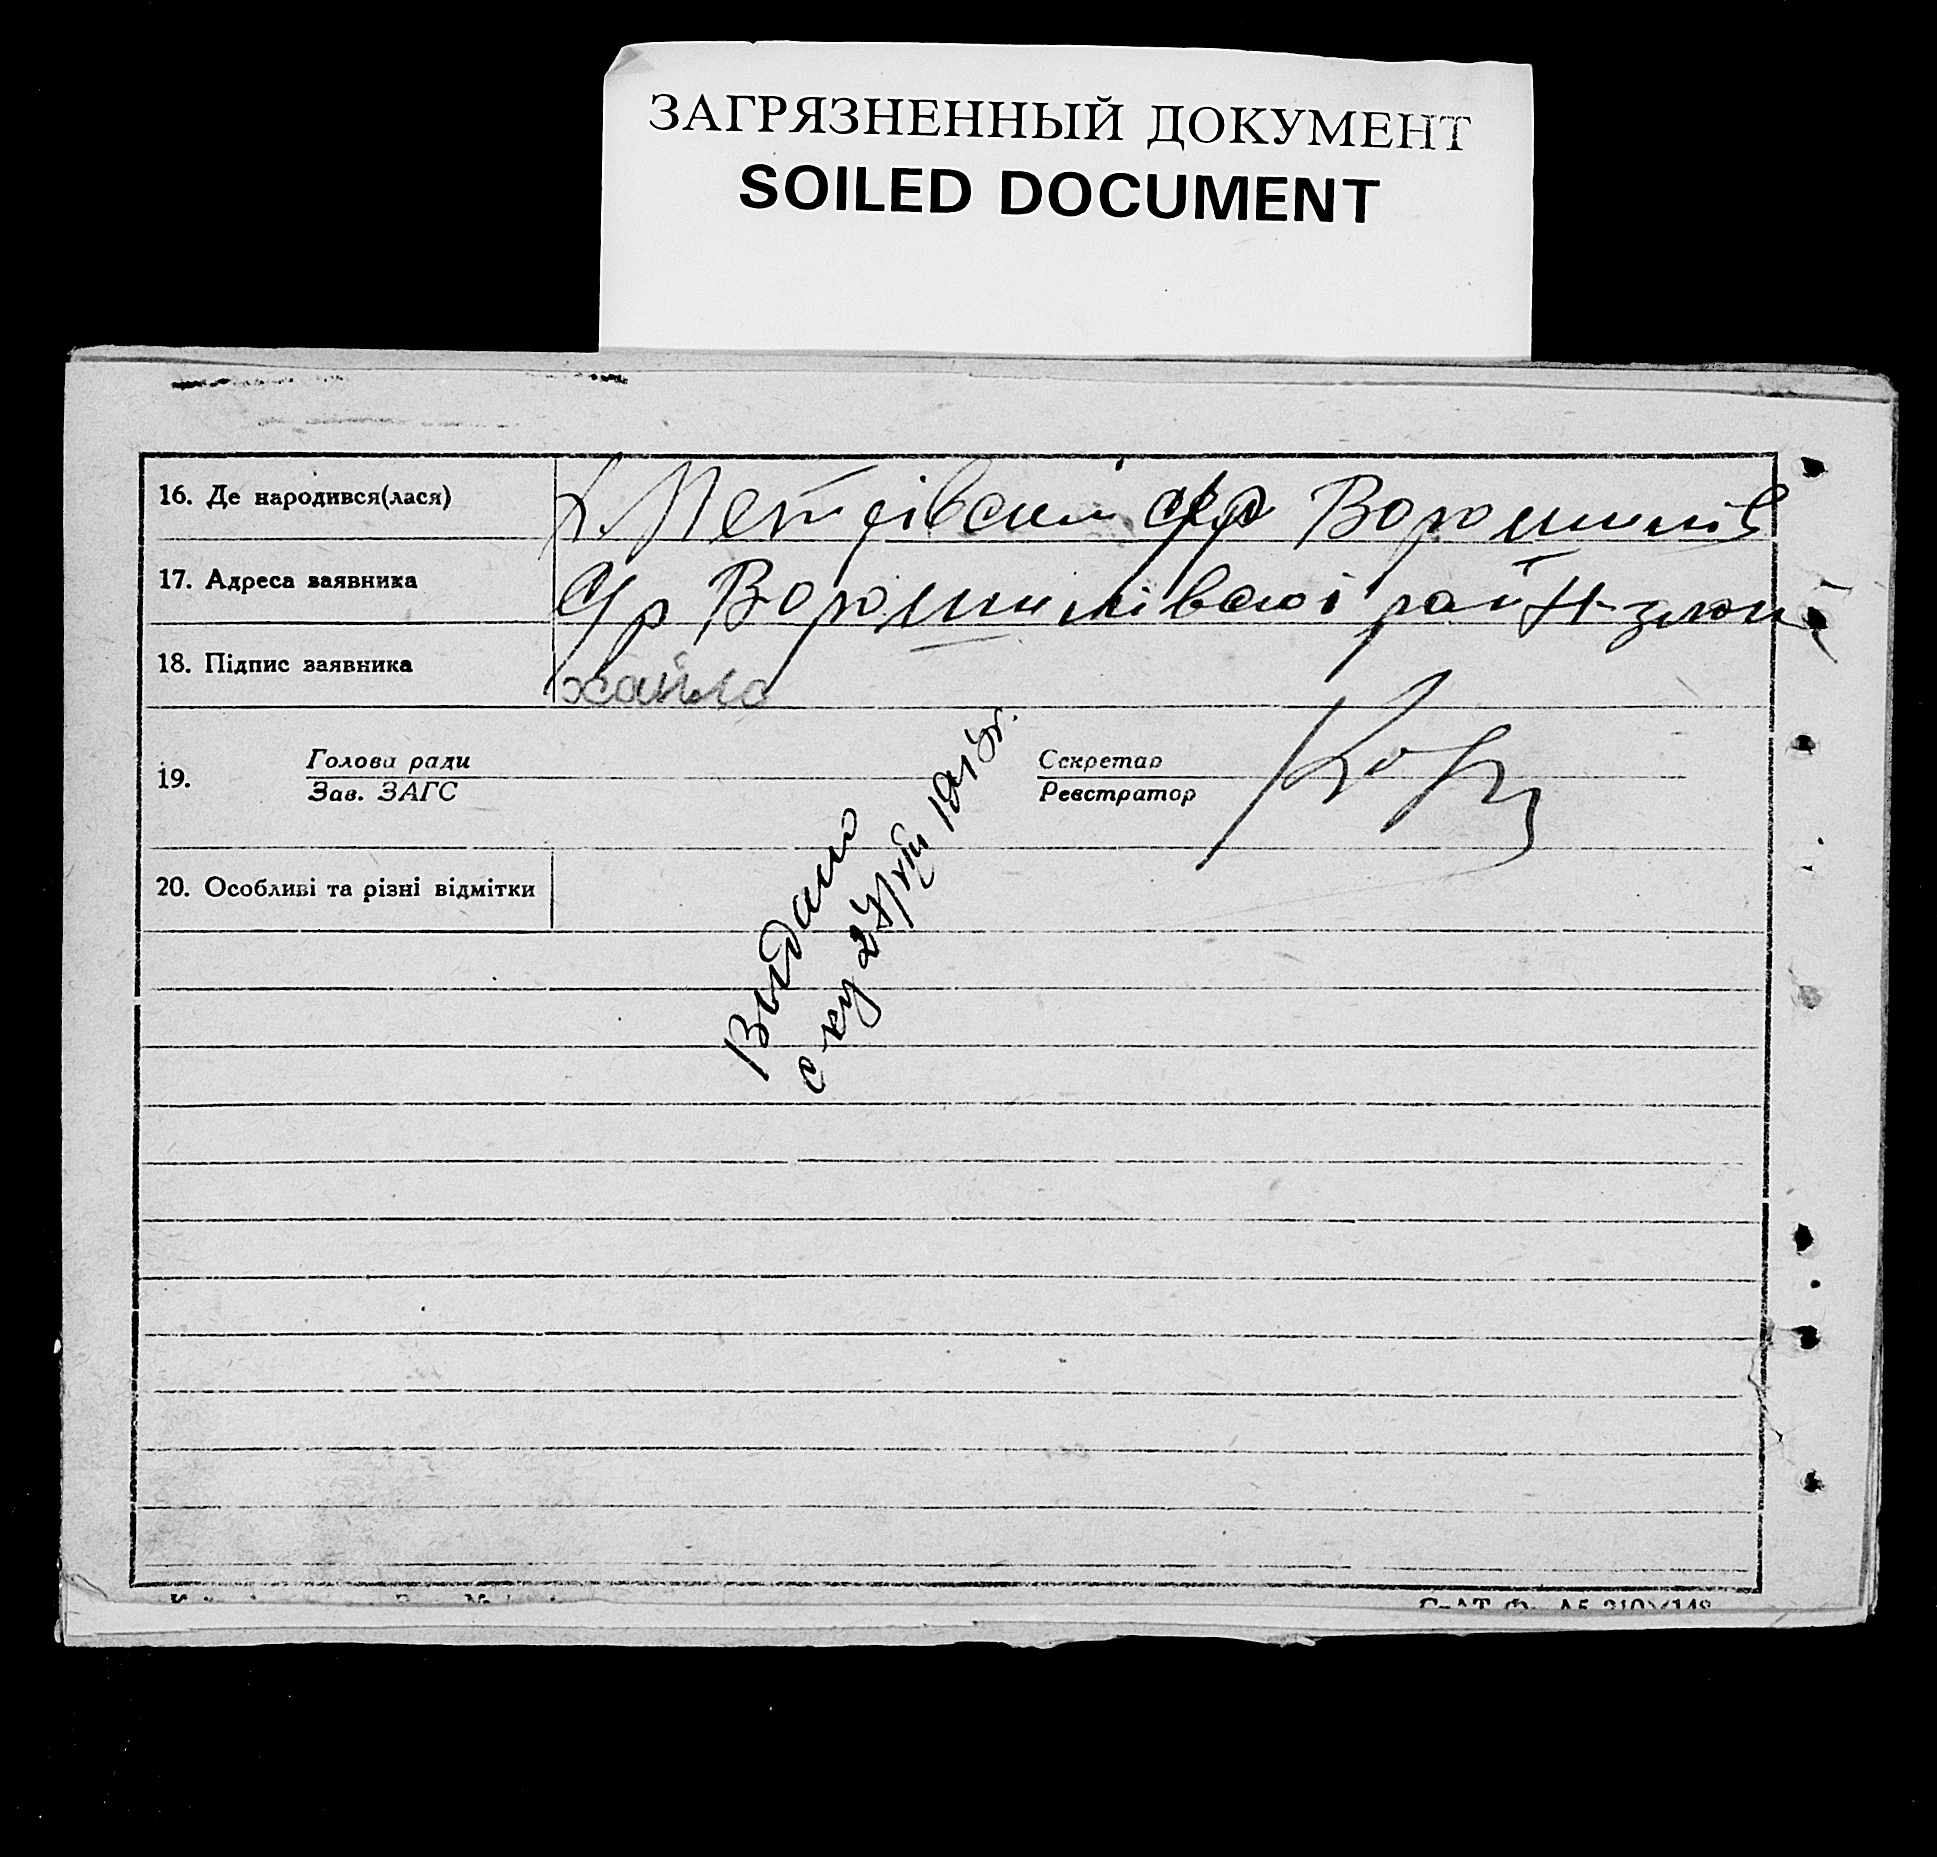 ЗАГРЯЗНЕННЫЙ ДОКУМЕНТ
SOILED DOCUMENT
16. Де народився(лася) х. Петрівский с/р Ворошилів
17. Адреса заявника с/р Ворошилівскоі район
18. Підпис заявника хайло
19. Голова ради
Зав. ЗАГС
Секретар
Реєстратор
Выдано
27/VIII
20. Особливі та різні відмітки